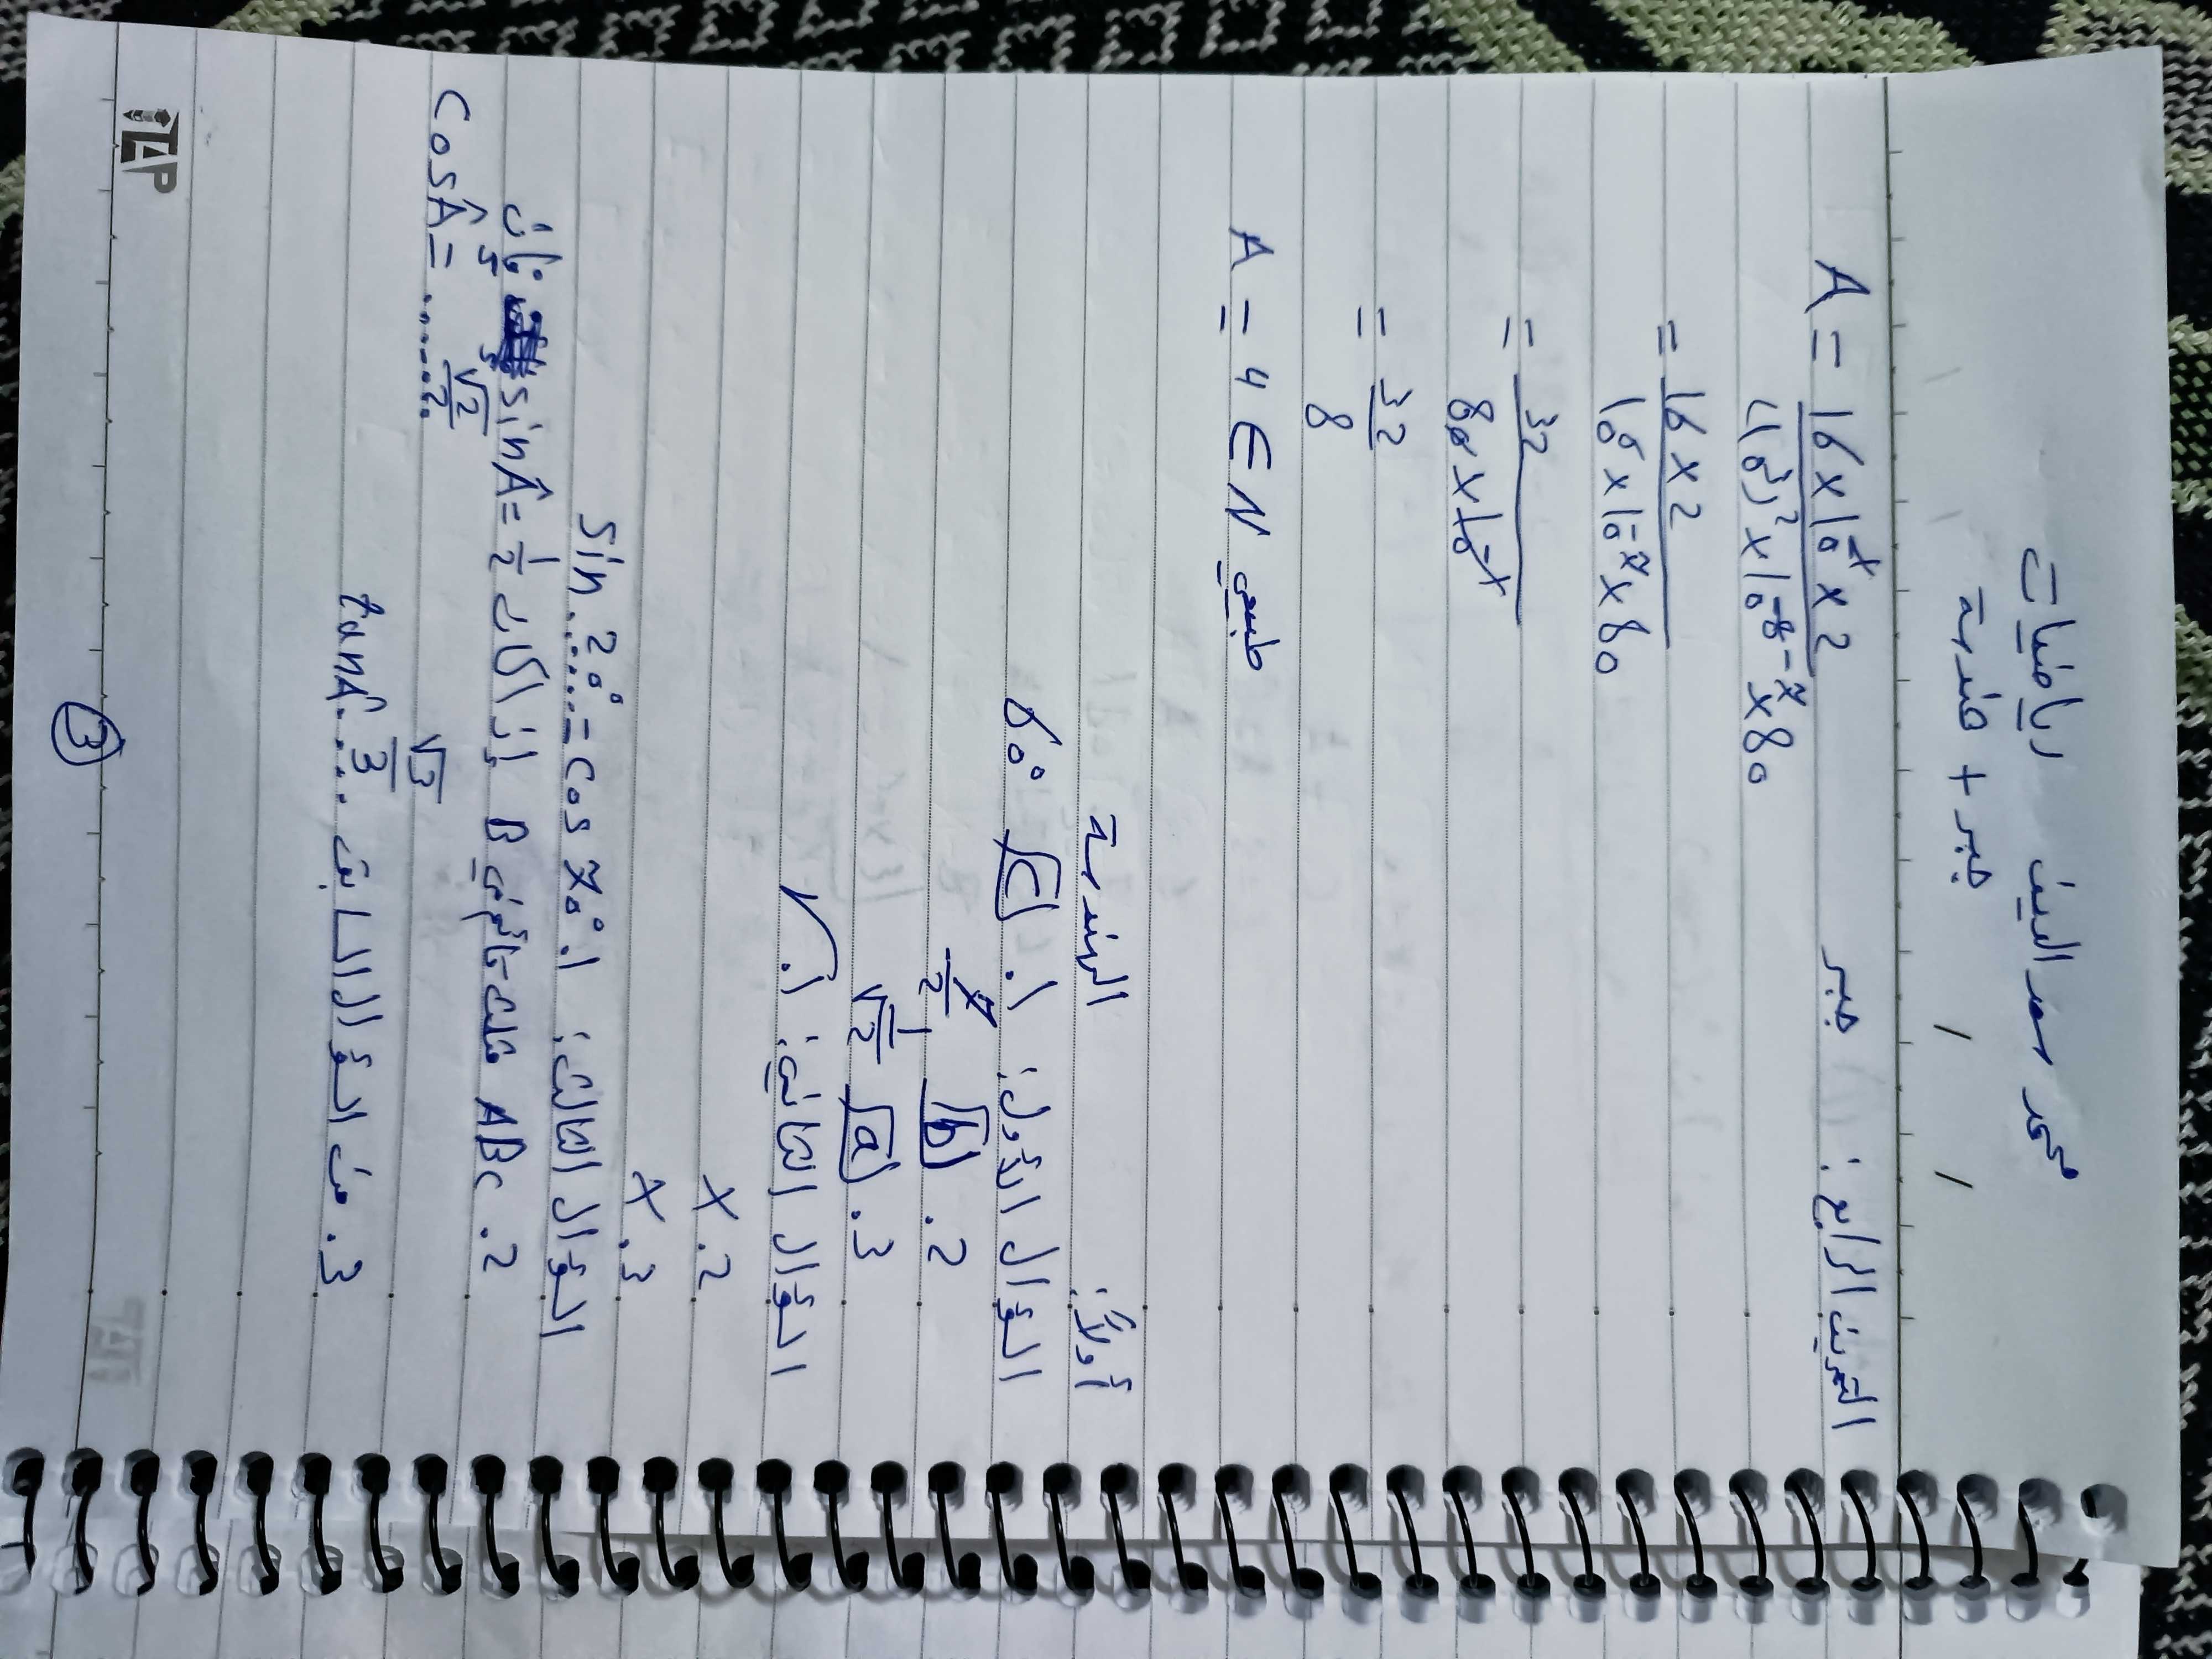 محمد سعد الديف رياضيات
/ / جبر + هندسة
التمرين الرابع: جبر
A = 16 x 10⁻¹ x 2 / (10³)² x 10⁻⁸⁻⁷ x 80
= 16 x 2 / 10⁶ x 10⁻⁷ x 80
= 32 / 80 x 10⁻¹
= 32 / 8
A = 4 ∈ N طبيعي
أولاً: الهندسة
السؤال الأول: 1. C 60°
2. b 7/2
3. a 1/√2
السؤال الثاني: 1. ✓
2. X
3. X
السؤال الثالث: 1. sin 20° = cos 70°
2. ABC مثلث قائم في B إذا كان sin Â = 1/2 فإن
cos Â = ..... √2/2
3. من السؤال السابق tan Â ... √3/3
3
TAP